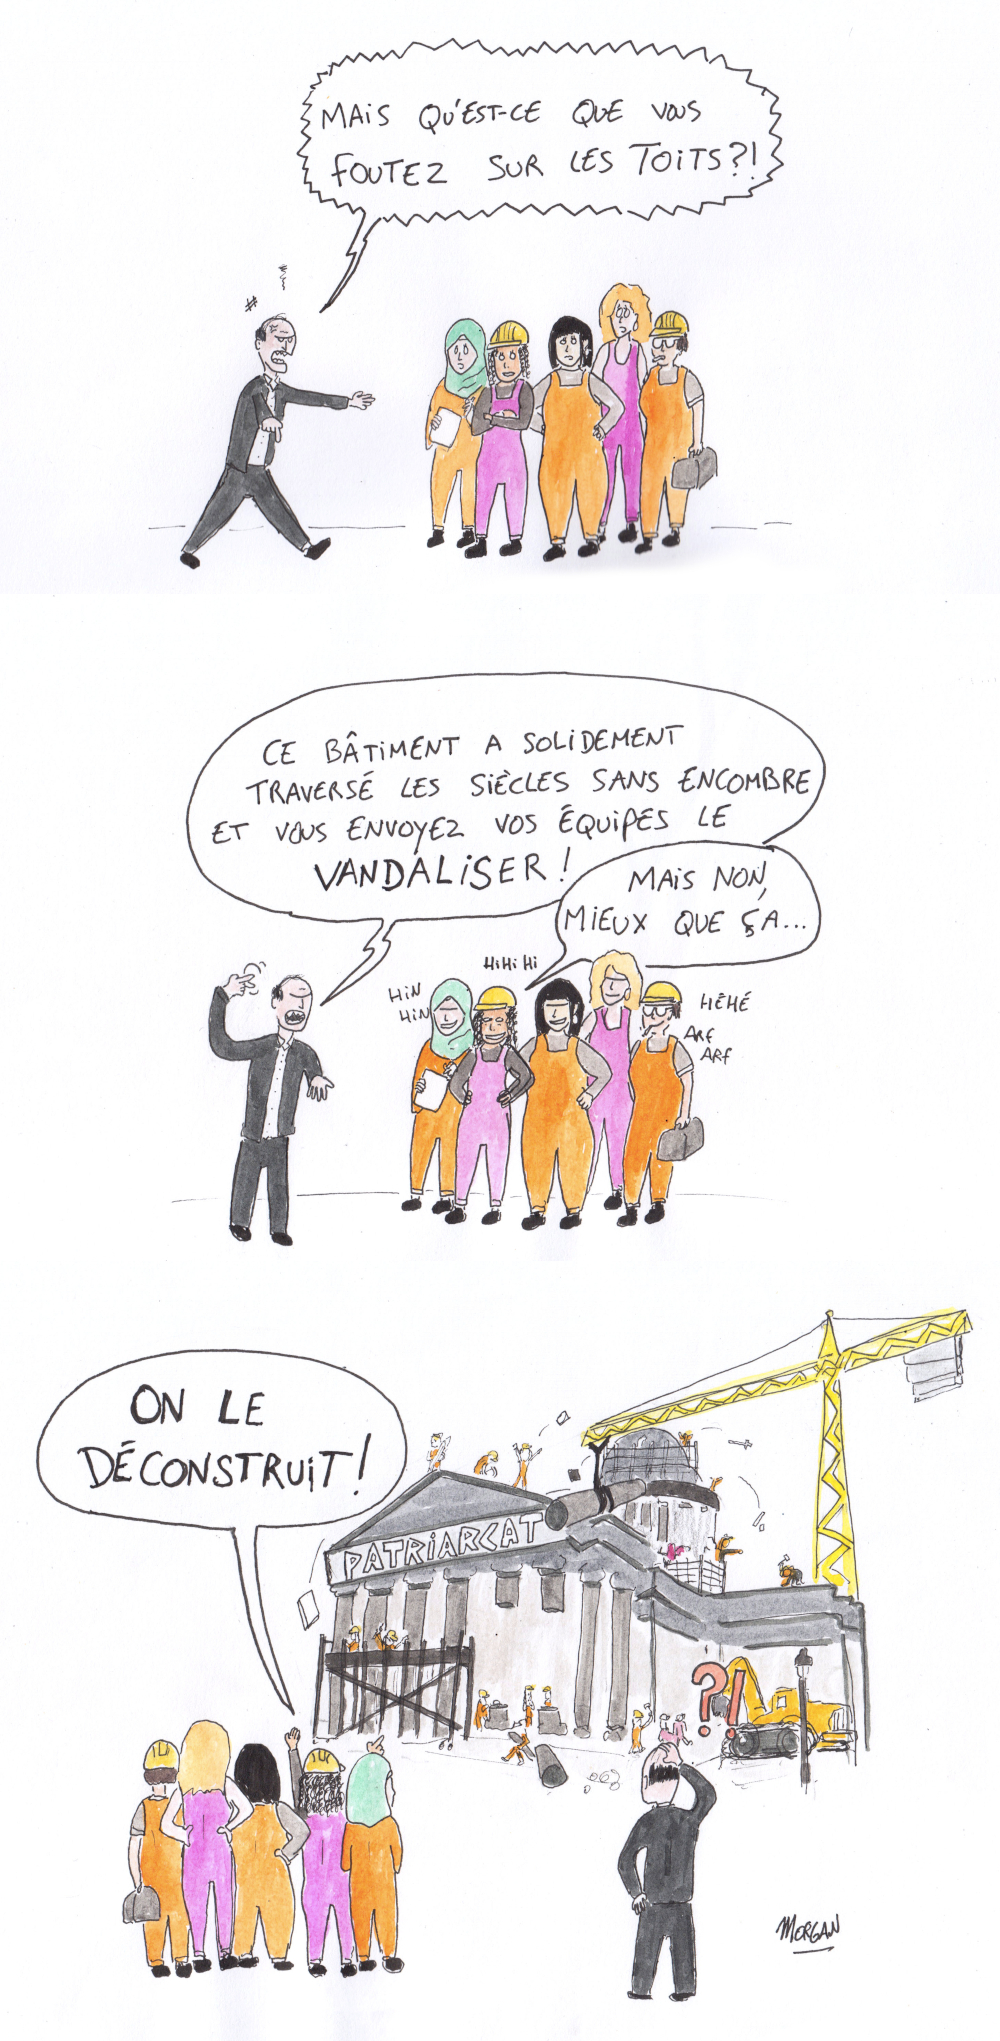 MAIS QU'EST-CE QUE VOUS
FOUTEZ SUR LES TOITS?!
#
CE BÂTIMENT A SOLIDEMENT
TRAVERSÉ LES SIÈCLES SANS ENCOMBRE
ET VOUS ENVOYEZ VOS ÉQUIPES LE
VANDALISER!
MAIS NON,
MIEUX QUE ÇA...
HiHiHi
HiN
HiN
HÉHÉ
ARF
ARF
ON LE
DÉCONSTRUIT!
PATRIARCAT
?!
MORGAN